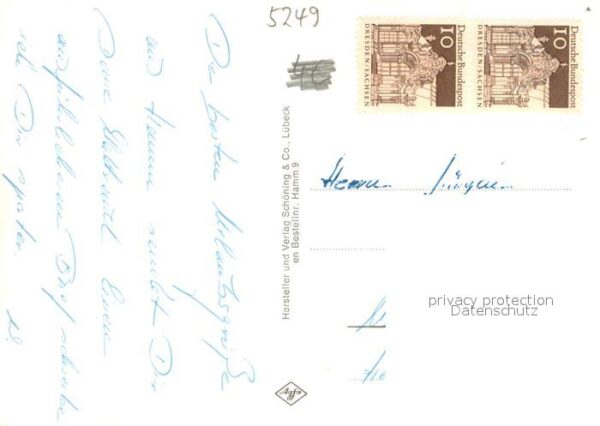 5249
10
Deutsche Bundespost
DRESDEN/SACHSEN
10
Deutsche Bundespost
DRESDEN/SACHSEN
Die besten Urlaubsgrüße
aus Hamm sendet Dir
Deine
ausführlicheren Brief schreibe
ich Dir später.
Hersteller und Verlag Schöning & Co., Lübeck
en Bestellnr. Hamm 9
Herrn Jürgen
privacy protection
Datenschutz
Agfa